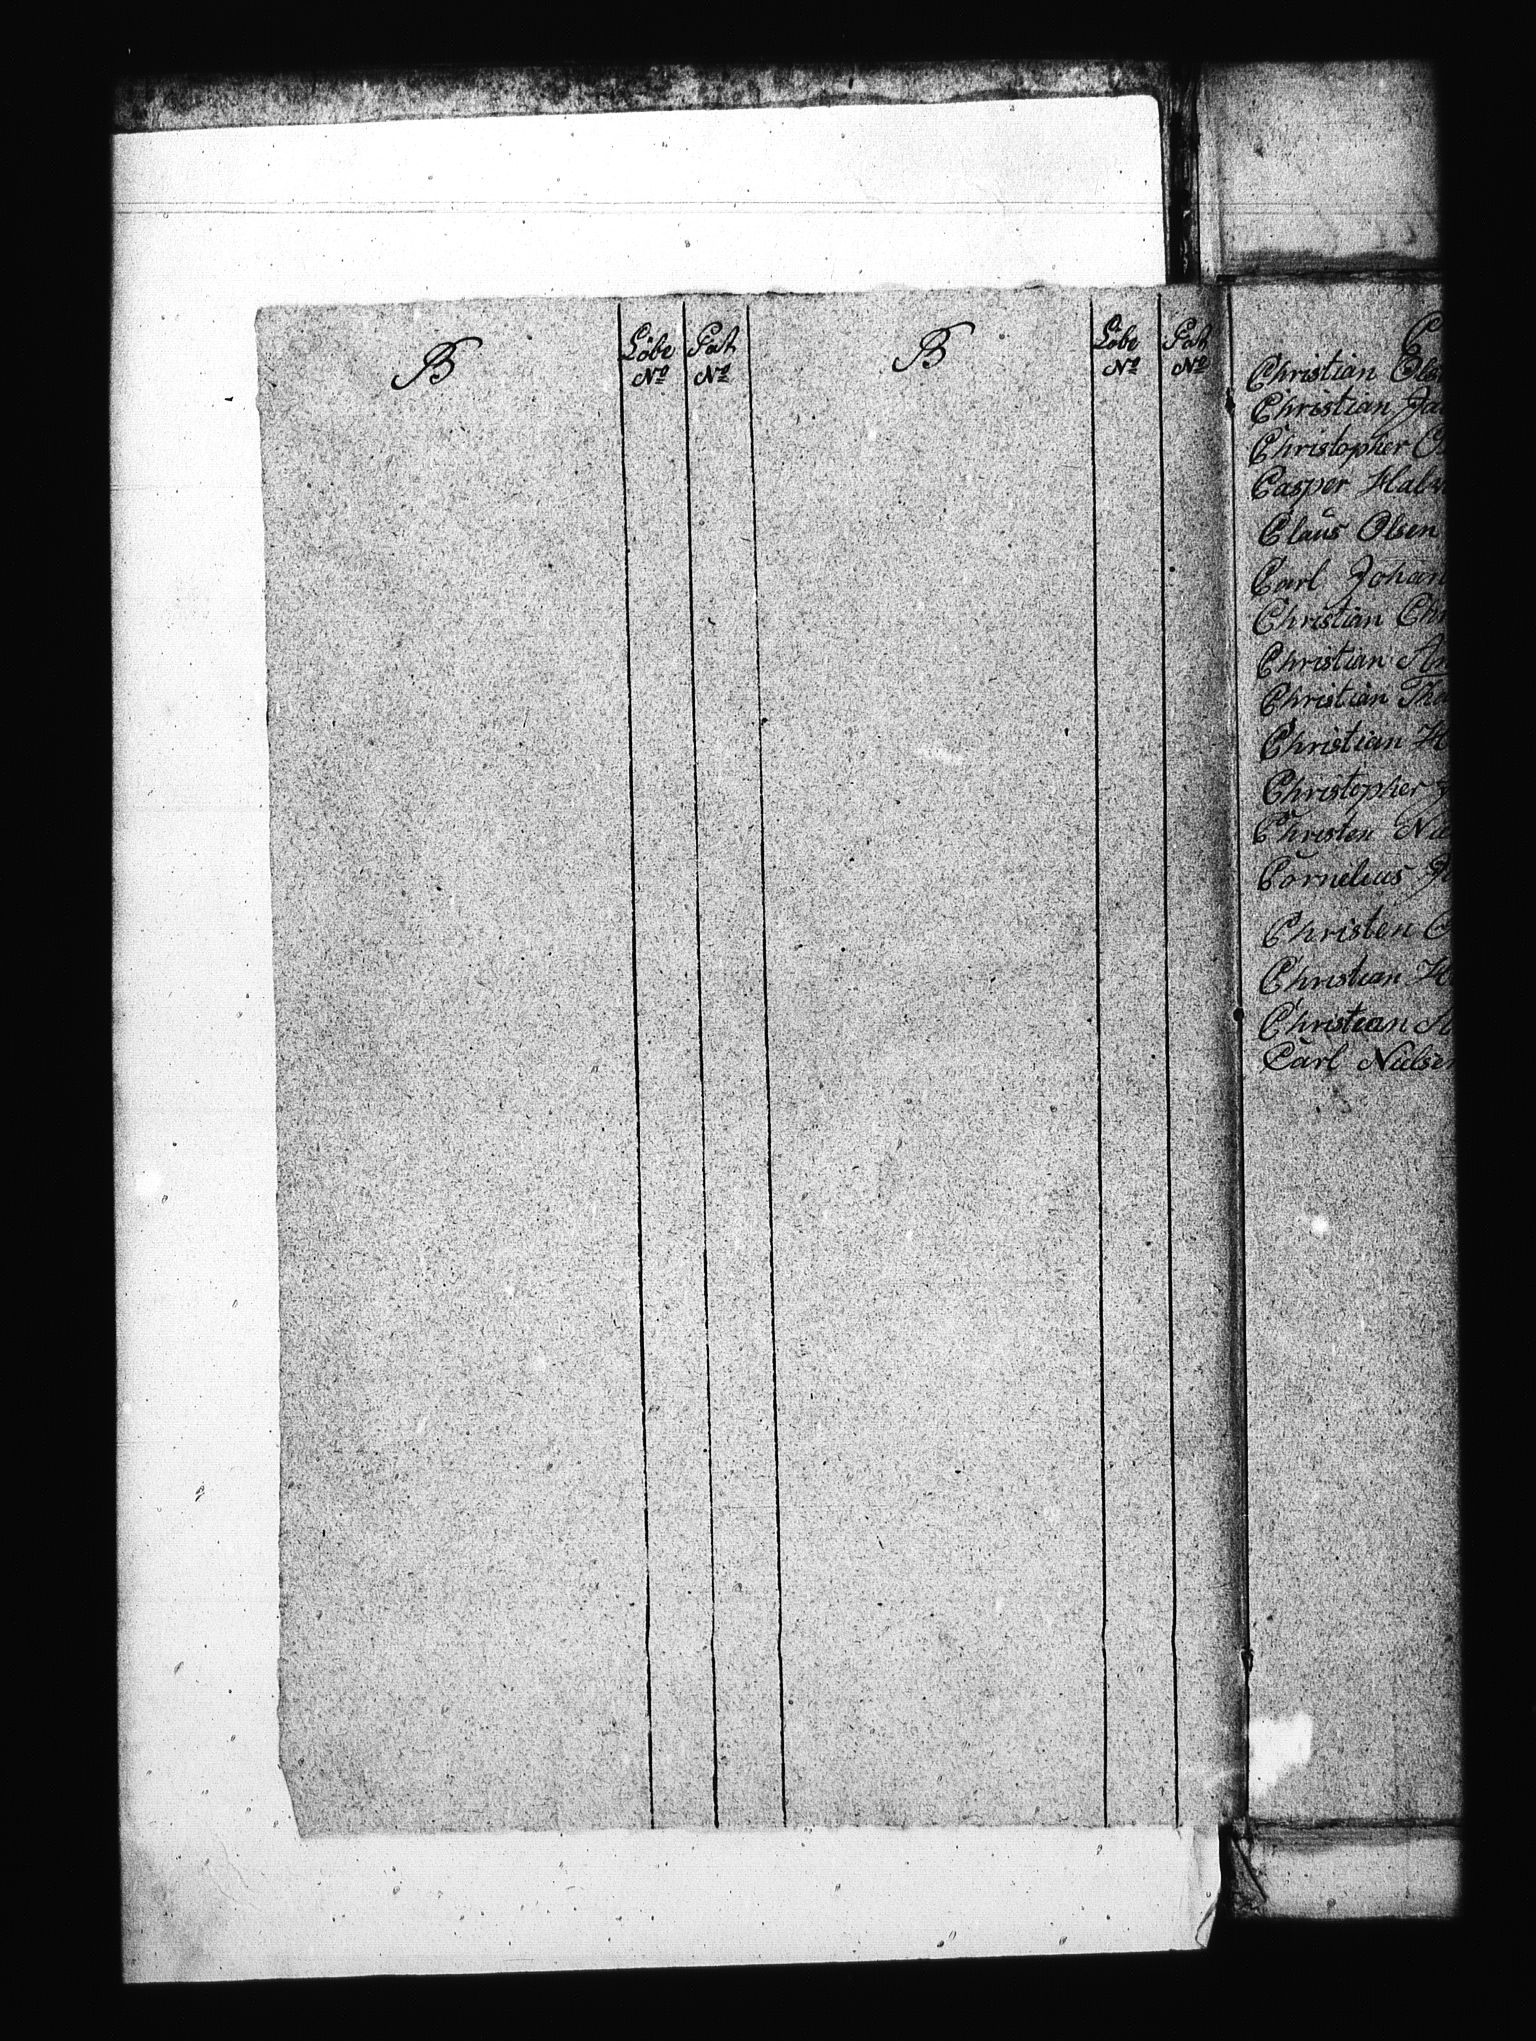 B
Löbe Nº
Pat Nº
B
Löbe Nº
Pat Nº
C
Christian
Christian
Christopher
Casper
Claus Olsen
Carl
Christian
Christian
Christian
Christian
Christopher
Christen
Cornelius
Christen
Christian
Christian
Carl Nielsen